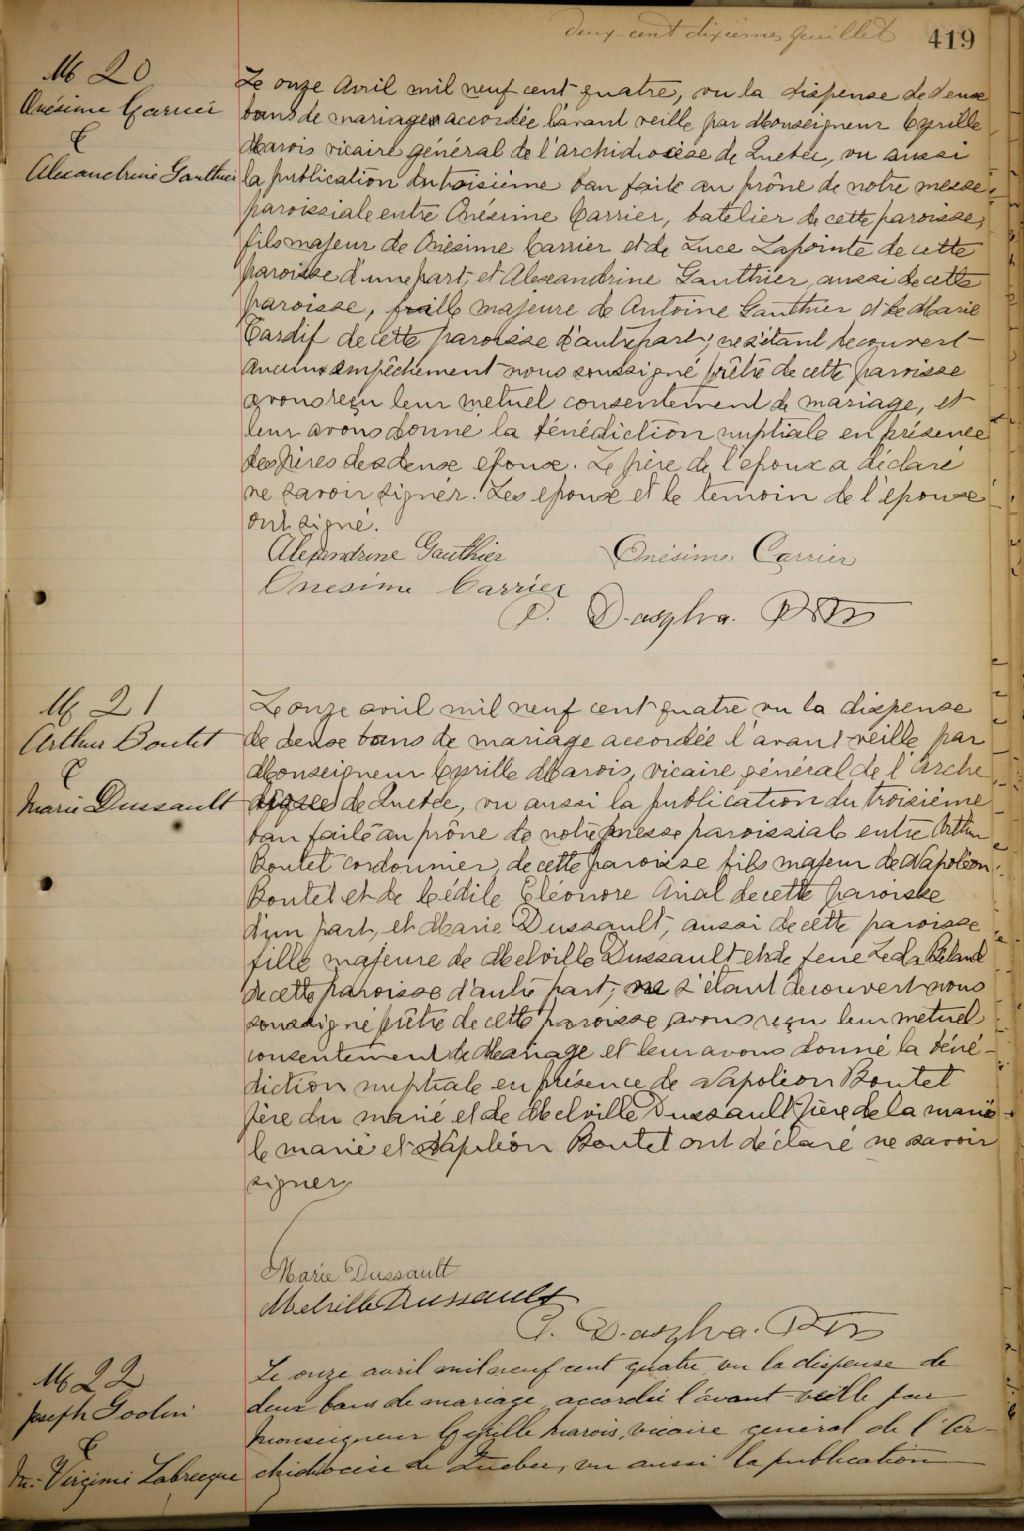 deux-cent dixième feuillet 419
M 20
Onésime Carrier
&
Alexandrine Gauthier
Le onze Avril mil neuf cent quatre, vu la dispense de deux
bans de mariage accordée l'avant veille par Monseigneur Cyrille
Marois vicaire général de l'archidiocèse de Quebec, vu aussi
la publication du troisième ban faite au prône de notre messe
paroissiale entre Onésime Carrier, batelier de cette paroisse,
fils majeur de Onésime Carrier et de Luce Lapointe de cette
paroisse d'une part, et Alexandrine Gauthier, aussi de cette
paroisse, fille majeure de Antoine Gauthier et de Marie
Tardif de cette paroisse d'autre part; ne s'étant decouvert
aucun empêchement nous soussigné prêtre de cette paroisse
avons reçu leur mutuel consentement de mariage, et
leur avons donné la bénédiction nuptiale en présence
des pères des deux epoux. Le père de l'epoux a déclaré
ne savoir signer. Les epoux et le temoin de l'epouse
ont signé.
Alexandrine Gauthier Onésime Carrier
Onesime Carrier
P. D. Ptre
M 21
Arthur Boutet
&
Marie Dussault
Le onze avril mil neuf cent quatre vu la dispense
de deux bans de mariage accordée l'avant-veille par
Monseigneur Cyrille Marois, vicaire général de l'Arche
de Quebec, vu aussi la publication du troisième
ban faite au prône de notre messe paroissiale entre Arthur
Boutet cordonnier, de cette paroisse fils majeur de Napoléon
Boutet et de Cédile Eléonore Arial de cette paroisse
d'un part, et Marie Dussault, aussi de cette paroisse
fille majeure de Melville Dussault et de feue Leda Béland
de cette paroisse d'autre part; ne s'étant decouvert nous
soussigné prêtre de cette paroisse avons reçu leur mutuel
consentement de Mariage et leur avons donné la béné-
diction nuptiale en présence de Napoléon Boutet
père du marié et de Melville Dussault père de la mariée
le marié et Napoléon Boutet ont déclaré ne savoir
signer
Marie Dussault
Melville Dussault
P. D. Ptre
M 22
Joseph Godin
&
M. Virginie Labrecque
Le onze avril mil neuf cent quatre vu la dispense de
deux bans de mariage accordée l'avant-veille par
Monseigneur Cyrille Marois, vicaire général de l'Ar-
chidiocèse de Quebec, vu aussi la publication